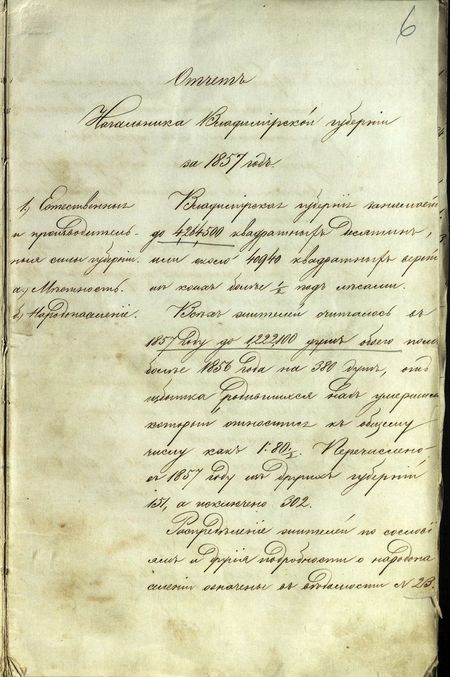 6
Отчетъ
Начальника Владимірской губерніи
за 1857 годъ.
1) Естественныя
и производитель-
ныя силы губерніи.
а) Мѣстность.
б) Народонаселеніе.
Владимірская губернія занимаетъ
до 4,264,500 квадратныхъ десятинъ,
или около 40940 квадратныхъ верстъ
изъ коихъ болѣе подъ лѣсами.
Всѣхъ жителей считалось въ
1857 году до 1,222,100 душъ обоего пола
болѣе 1856 года на 380 душъ, отъ
избытка родившихся надъ умершими
который относится къ общему
числу какъ 1:80. Перечислено
въ 1857 году изъ другихъ губерній
151, а исключено 302.
Распредѣленіе жителей по сослові-
ямъ и другія подробности о народона-
селеніи означены въ вѣдомости № 23.